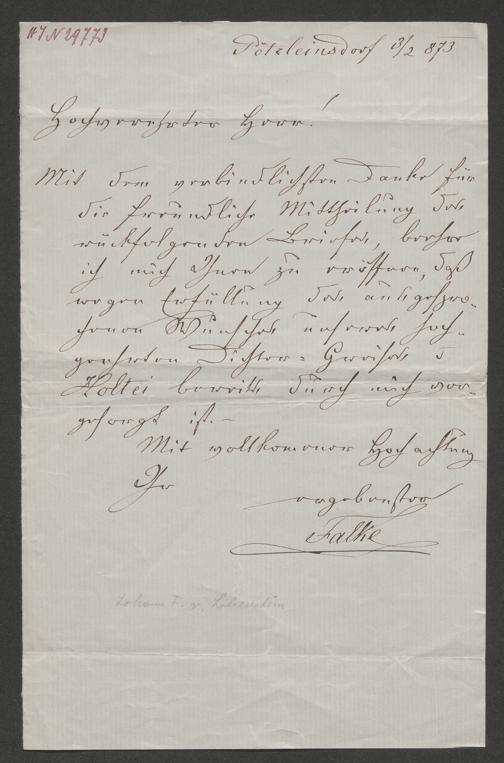 H I N 29773
Pötzleinsdorf 3/2 873
Hochverehrter Herr!
Mit dem verbindlichsten Danke für
die freundliche Mittheilung des
rückfolgenden Briefes, beehre
ich mich Ihnen zu eröffnen, daß
wegen Erfüllung des ausgespro-
chenen Wunsches unseres hoch-
geehrten Dichter-Greises v
Holtei bereits durch mich vor-
gesorgt ist.–
Mit vollkomener Hochachtung
Ihr ergebenster
Falke
Johann F. v. Lilienstein